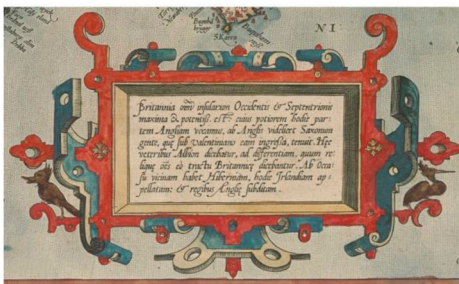 NI
S Karen
Britannia omĩ insularum Occidentis & Septentrionis
maxima & potentiss. est: cuius potiorem hodie par-
tem Angliam vocamus, ab Anglis videlicet Saxonum
gente, quę sub Valentiniano eam ingressa, tenuit. Hęc
veteribus Albion dicebatur, ad differentiam, quum re-
liquę oẽs eo tractu Britannicę dicebantur. Ab Occa-
su vicinam habet Hiberniam, hodie Irlandiam ap-
pellatam: & regibus Anglię subditam.